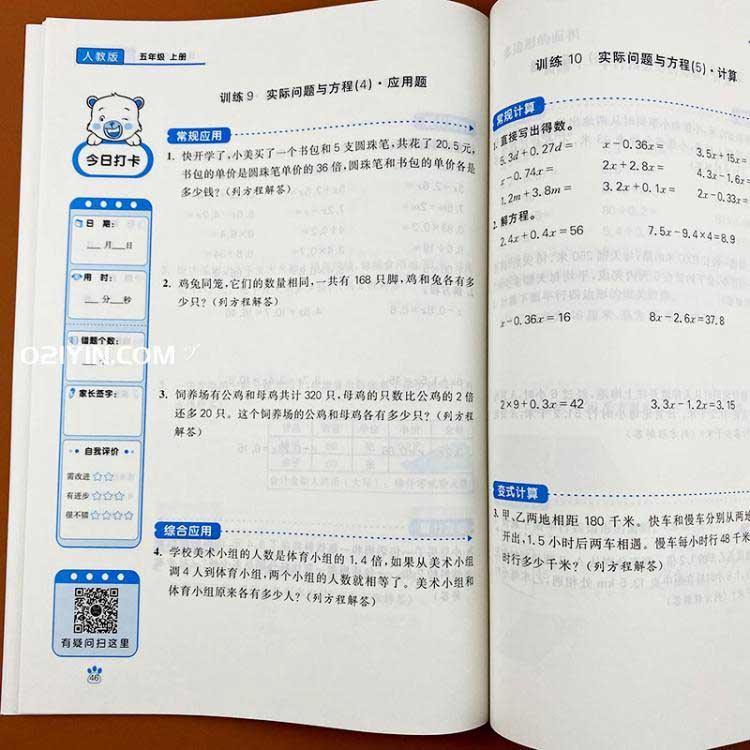 人教版 五年级 上册
训练9 实际问题与方程(4)·应用题
今日打卡
日 期:
月 日
用 时:
分 秒
错题个数:
个
家长签字:
自我评价
需改进 ☆☆
有进步 ☆☆☆
很不错 ☆☆☆☆
有疑问扫这里
46
常规应用
1. 快开学了,小美买了一个书包和5支圆珠笔,共花了20.5元,
书包的单价是圆珠笔单价的36倍,圆珠笔和书包的单价各是
多少钱?(列方程解答)
2. 鸡兔同笼,它们的数量相同,一共有168只脚,鸡和兔各有多
少只?(列方程解答)
3. 饲养场有公鸡和母鸡共计320只,母鸡的只数比公鸡的2倍
还多20只。这个饲养场的公鸡和母鸡各有多少只?(列方程
解答)
综合应用
4. 学校美术小组的人数是体育小组的1.4倍,如果从美术小组
调4人到体育小组,两个小组的人数就相等了。美术小组和
体育小组原来各有多少人?(列方程解答)
O2IYIN.COM
训练10 实际问题与方程(5)·计算
常规计算
1. 直接写出得数。
5.3d+0.27d= x-0.36x= 3.5x+15x=
x-0.74x= 2x+2.8x= 4.3x-1.6x=
1.2m+3.8m= 3.2x+0.1x= 2x-0.33x=
2. 解方程。
2.4x+0.4x=56 7.5x-9.4×4=8.9
x-0.36x=16 8x-2.6x=37.8
2×9+0.3x=42 3.3x-1.2x=3.15
变式计算
3. 甲、乙两地相距180千米。快车和慢车分别从两地
开出,1.5小时后两车相遇。慢车每小时行48千米
时行多少千米?(列方程解答)